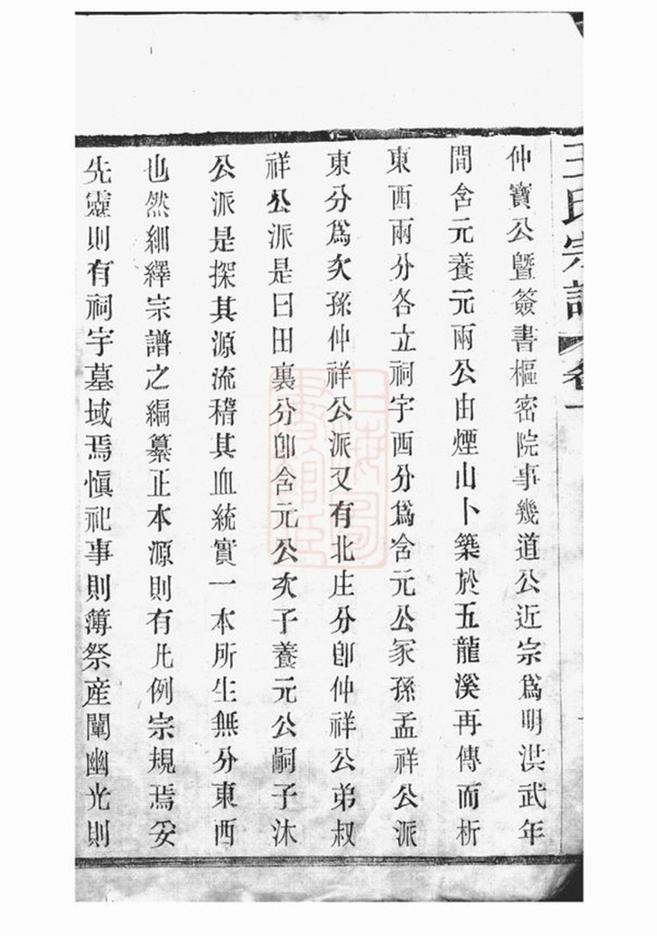 王氏宗譜 卷一
仲寶公曁簽書樞密院事幾道公近宗爲明洪武年
間含元養元兩公由煙山卜築於五龍溪再傳而析
東西兩分各立祠宇西分爲含元公冢孫孟祥公派
東分爲次孫仲祥公派又有北庄分卽仲祥公弟叔
祥公派是曰田裏分卽含元公次子養元公嗣子沐
公派是探其源流稽其血統實一本所生無分東西
也然細繹宗譜之編纂正本源則有凡例宗規焉妥
先靈則有祠宇墓域焉愼祀事則簿祭産闡幽光則
上海圖書館藏